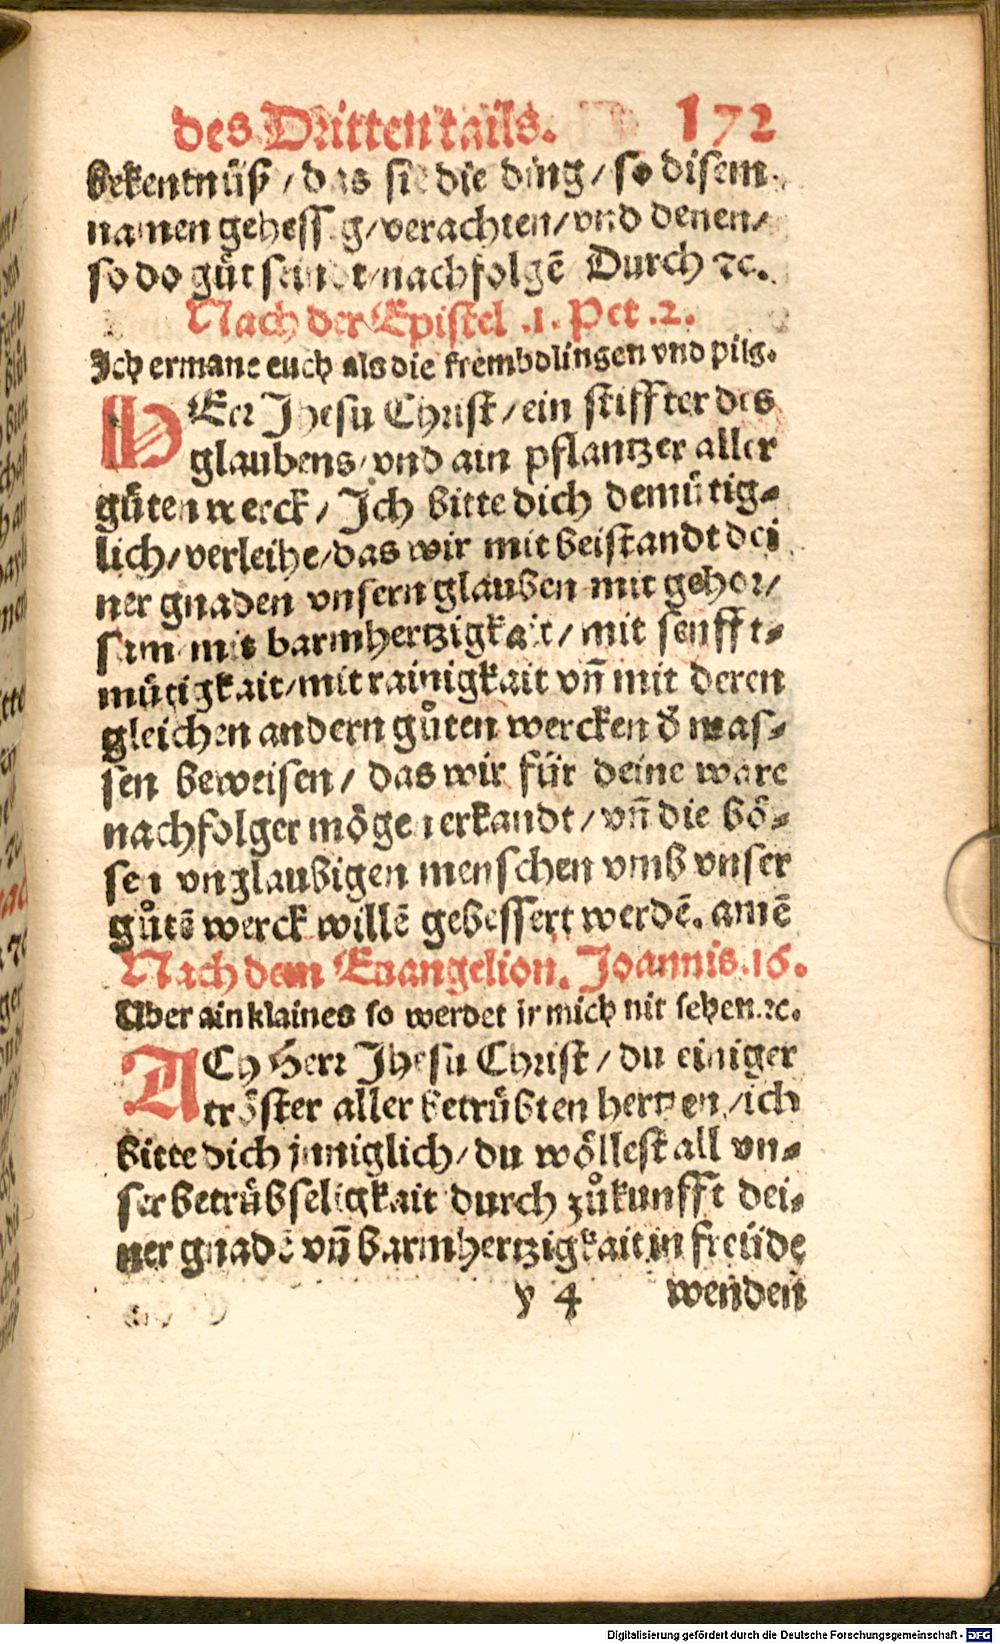 des Dritten tails. 172
bekentnüß / das sie die ding / so disem
namen gehessig / verachten / vnd denen /
so do gůt seindt / nachfolgē Durch ꝛc.
Nach der Epistel .1. Pet .2.
Ich ermane euch als die frembdlingen vnd pilg.
HErr Jhesu Christ / ein stiffter des
glaubens / vnd ain pflantzer aller
gůten werck / Ich bitte dich demütig⸗
lich / verleihe / das wir mit beistandt dei
ner gnaden vnsern glauben mit gehor /
sam mit barmhertzigkait / mit senfft⸗
mütigkait / mit rainigkait vn̄ mit deren
gleichen andern gůten wercken d̄ mas⸗
sen beweisen / das wir für deine ware
nachfolger mögen erkandt / vn̄ die bö⸗
sen vnglaubigen menschen vmb vnser
gůtē werck willē gebessert werdē. amē
Nach dem Euangelion. Joannis .16.
Uber ain klaines so werdet ir mich nit sehen. ꝛc.
ACh Herr Jhesu Christ / du einiger
tröster aller betrübten hertzen / ich
bitte dich inniglich / du wöllest all vn⸗
ser betrübseligkait durch zůkunfft dei⸗
ner gnadē vn̄ barmhertzigkait in freüde
y 4 wenden
Digitalisierung gefördert durch die Deutsche Forschungsgemeinschaft - DFG